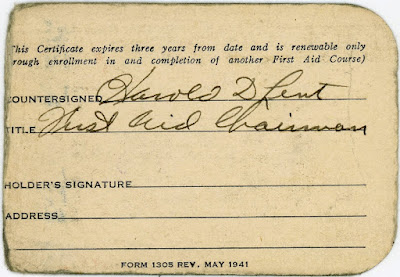 (This Certificate expires three years from date and is renewable only
rough enrollment in and completion of another First Aid Course)
COUNTERSIGNED Harold D Lent
TITLE First Aid Chairman
HOLDER'S SIGNATURE
ADDRESS
FORM 1305 REV. MAY 1941